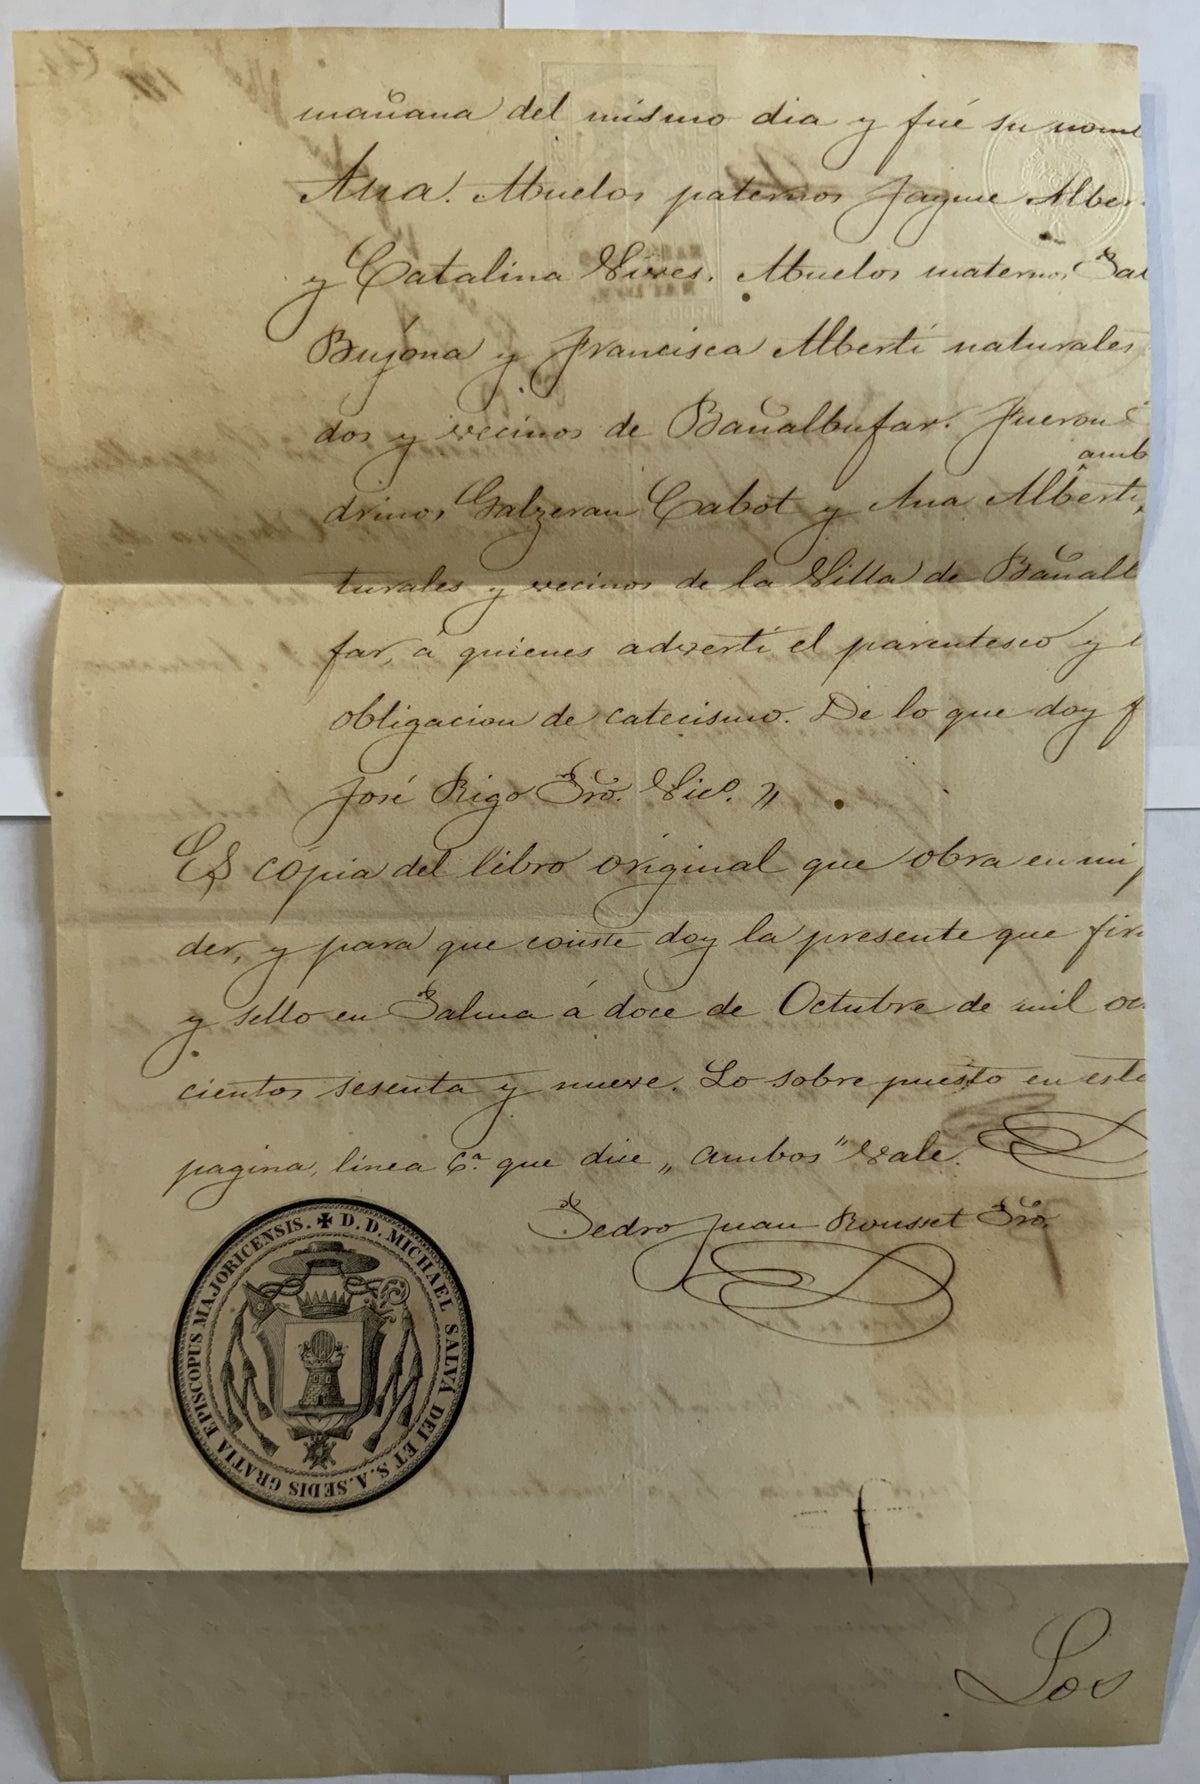 mañana del mismo dia y fué su nom
Ana. Abuelos paternos Jayme Alber
y Catalina Vives. Abuelos maternos
Bujona y Francisca Albertí naturales
dos y vecinos de Bañalbufar. Fueron
amb
drinos Galzeran Cabot y Ana Alberti,
turales y vecinos de la Villa de Bañalb
far, á quienes advertí el parentesco y
obligacion de catecismo. De lo que doy f
José Rigo Pro. Vico. "
Es cópia del libro original que obra en mi p
der, y para que conste doy la presente que fir
y sello en Palma á doce de Octubre de mil oc
cientos sesenta y nueve. Lo sobre puesto en esta
pagina, línea 6ª. que dice „ ambos " Vale.
Pedro Juan Rousset Pro.
✠ D. D. MICHAEL SALVÁ DEI ET S. A. SEDIS GRATIA EPISCOPUS MAJORICENSIS.
Los